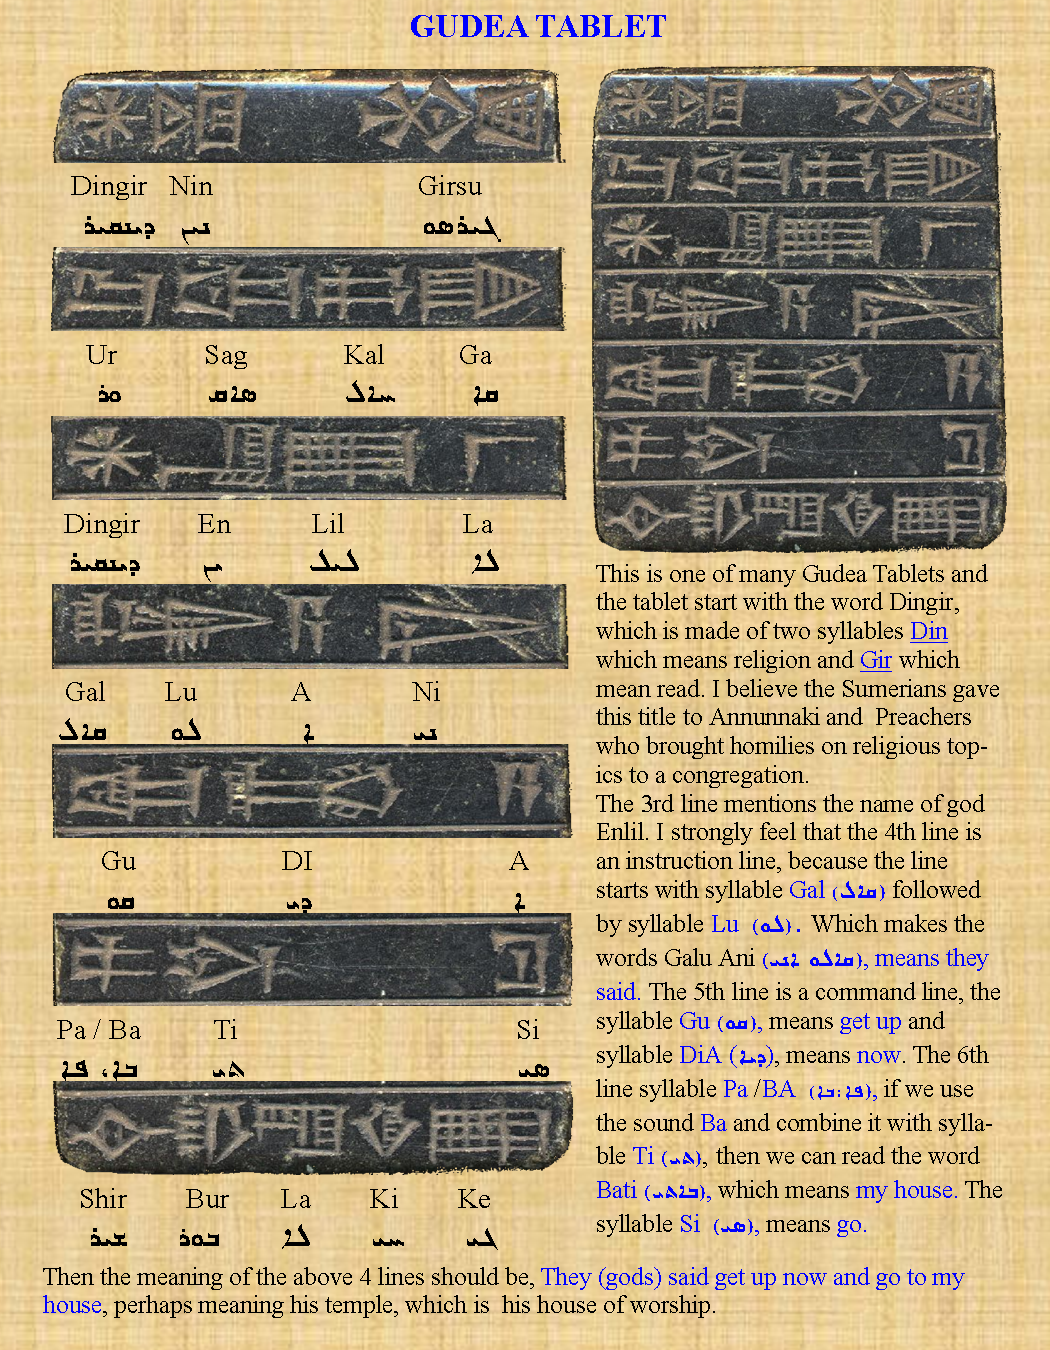 GUDEA TABLET
Dingir Nin Girsu
ܕܝܢܩܝܪ ܢܝܢ ܓܝܪܣܘ
Ur Sag Kal Ga
ܘܪ ܣܐܩ ܚܐܠ ܩܐ
Dingir En Lil La
ܕܝܢܩܝܪ ܝܢ ܠܝܠ ܠܐ
Gal Lu A Ni
ܩܐܠ ܠܘ ܐ ܢܝ
Gu DI A
ܩܘ ܕܝ ܐ
Pa / Ba Ti Si
ܒܐ ، ܦܐ ܬܝ ܣܝ
Shir Bur La Ki Ke
ܫܝܪ ܒܘܪ ܠܐ ܚܝ ܓܝ
This is one of many Gudea Tablets and
the tablet start with the word Dingir,
which is made of two syllables Din
which means religion and Gir which
mean read. I believe the Sumerians gave
this title to Annunnaki and Preachers
who brought homilies on religious top-
ics to a congregation.
The 3rd line mentions the name of god
Enlil. I strongly feel that the 4th line is
an instruction line, because the line
starts with syllable Gal (ܩܐܠ) followed
by syllable Lu (ܠܘ). Which makes the
words Galu Ani (ܩܐܠܘ ܐܢܝ), means they
said. The 5th line is a command line, the
syllable Gu (ܩܘ), means get up and
syllable DiA (ܕܝܐ), means now. The 6th
line syllable Pa /BA (ܦܐ:ܒܐ), if we use
the sound Ba and combine it with sylla-
ble Ti (ܬܝ), then we can read the word
Bati (ܒܐܬܝ), which means my house. The
syllable Si (ܣܝ), means go.
Then the meaning of the above 4 lines should be, They (gods) said get up now and go to my
house, perhaps meaning his temple, which is his house of worship.